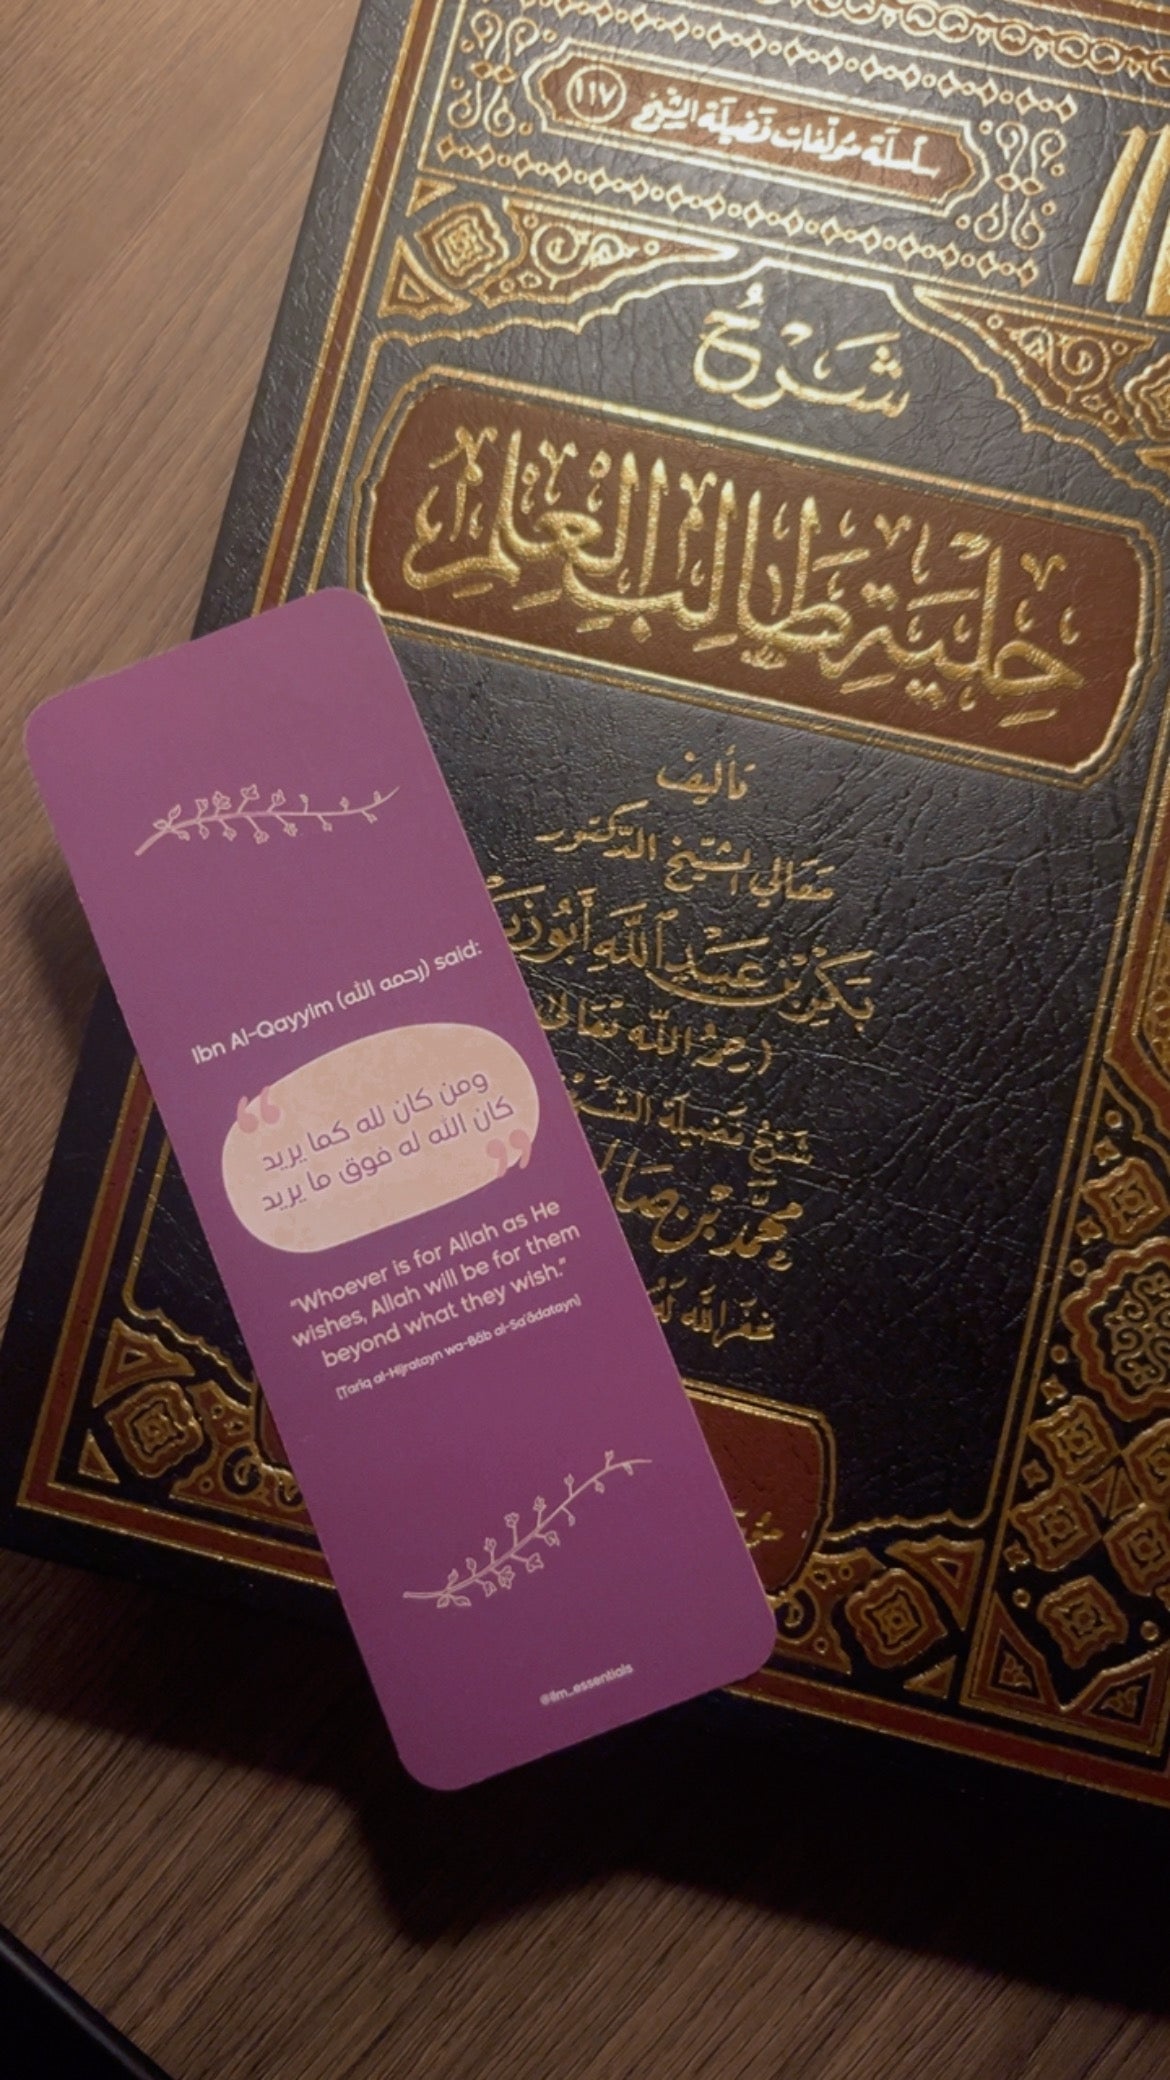 سلسلة مؤلفات فضيلة الشيخ ١١٧
شرح
حلية طالب العلم
تأليف
معالي الشيخ الدكتور
بكر بن عبد الله أبو
(رحمه الله تعالى
شرح فضيلة
محمد بن صا
غفر الله
Ibn Al-Qayyim (رحمه الله) said:
“
ومن كان لله كما يريد
كان الله له فوق ما يريد
”
“Whoever is for Allah as He
wishes, Allah will be for them
beyond what they wish.”
[Tarīq al-Hijratayn wa-Bāb al-Sa'ādatayn]
@ilm_essentials